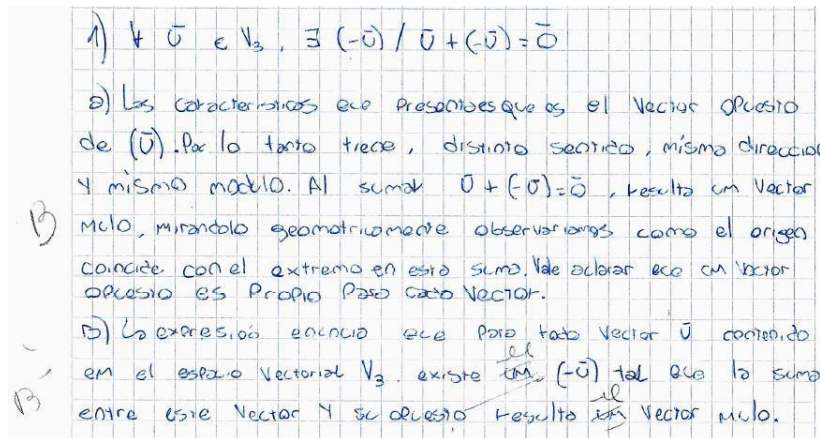 1) ∀ Ū ∈ V₃, ∃ (-ū) / Ū + (-ū) = Ō
a) Las características que presenta es que es el vector opuesto
de (Ū). Por lo tanto tiene, distinto sentido, mismo direccion
y mismo modulo. Al sumar Ū + (-ū) = ō, resulta un vector
nulo, mirandolo geometricamente observariamos como el origen
coincide con el extremo en esta suma. Vale aclarar que un vector
opuesto es propio para cada vector.
B
B) La expresión enuncia que para todo vector ū contenido
el
en el espacio vectorial V₃. existe un (-ū) tal que la suma
B⁻
el
entre este vector y su opuesto resulta un vector nulo.